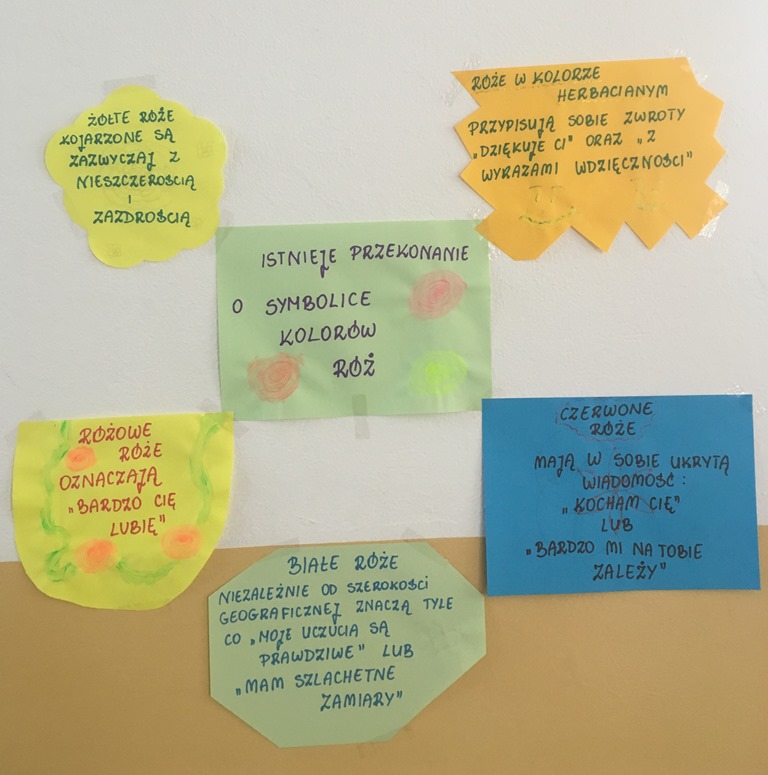 ŻÓŁTE RÓŻE
KOJARZONE SĄ
ZAZWYCZAJ Z
NIESZCZEROŚCIĄ
I
ZAZDROŚCIĄ
RÓŻE W KOLORZE
HERBACIANYM
PRZYPISUJĄ SOBIE ZWROTY
„DZIĘKUJĘ CI" ORAZ „Z
WYRAZAMI WDZIĘCZNOŚCI"
ISTNIEJE PRZEKONANIE
O SYMBOLICE
KOLORÓW
RÓŻ
RÓŻOWE
RÓŻE
OZNACZAJĄ
„BARDZO CIĘ
LUBIĘ"
CZERWONE
RÓŻE
MAJĄ W SOBIE UKRYTĄ
WIADOMOŚĆ:
„KOCHAM CIĘ"
LUB
„BARDZO MI NA TOBIE
ZALEŻY"
BIAŁE RÓŻE
NIEZALEŻNIE OD SZEROKOŚCI
GEOGRAFICZNEJ ZNACZĄ TYLE
CO „MOJE UCZUCIA SĄ
PRAWDZIWE" LUB
„MAM SZLACHETNE
ZAMIARY"